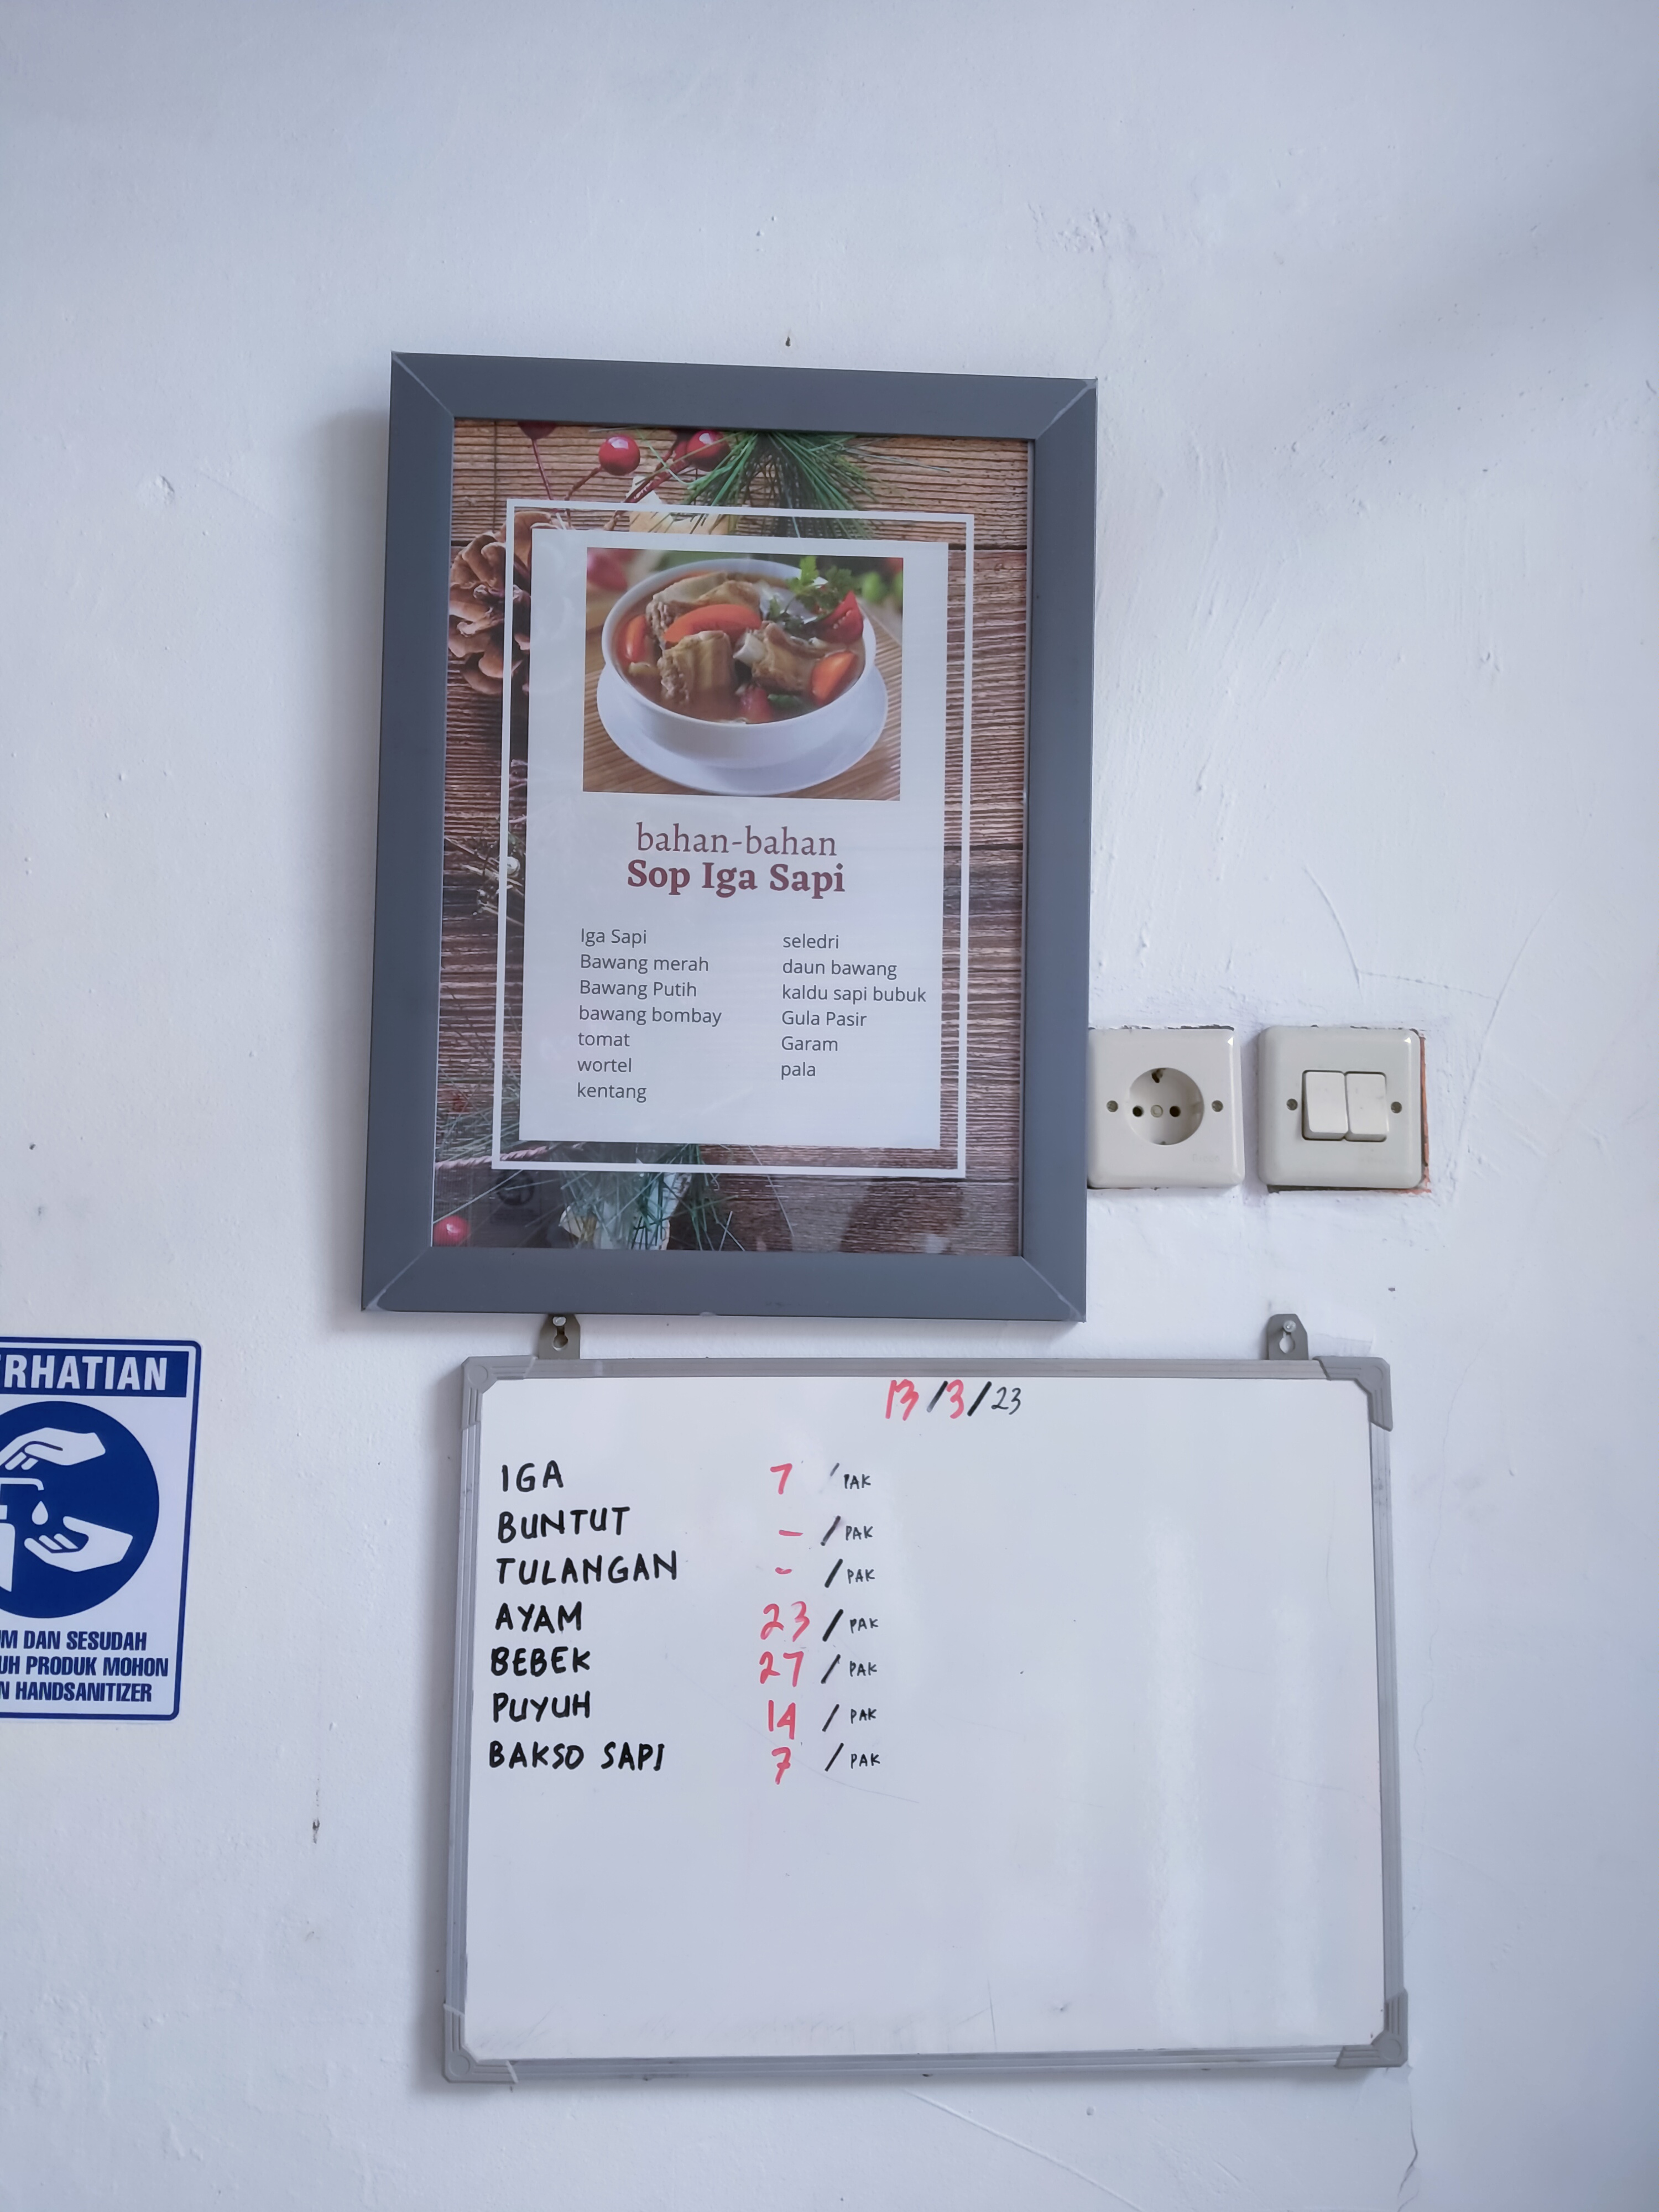 bahan-bahan
Sop Iga Sapi
Iga Sapi
Bawang merah
Bawang Putih
bawang bombay
tomat
wortel
kentang
seledri
daun bawang
kaldu sapi bubuk
Gula Pasir
Garam
pala
RHATIAN
M DAN SESUDAH
UH PRODUK MOHON
N HANDSANITIZER
13/3/23
IGA 7 /PAK
BUNTUT - /PAK
TULANGAN - /PAK
AYAM 23 /PAK
BEBEK 27 /PAK
PUYUH 14 /PAK
BAKSO SAPI 7 /PAK